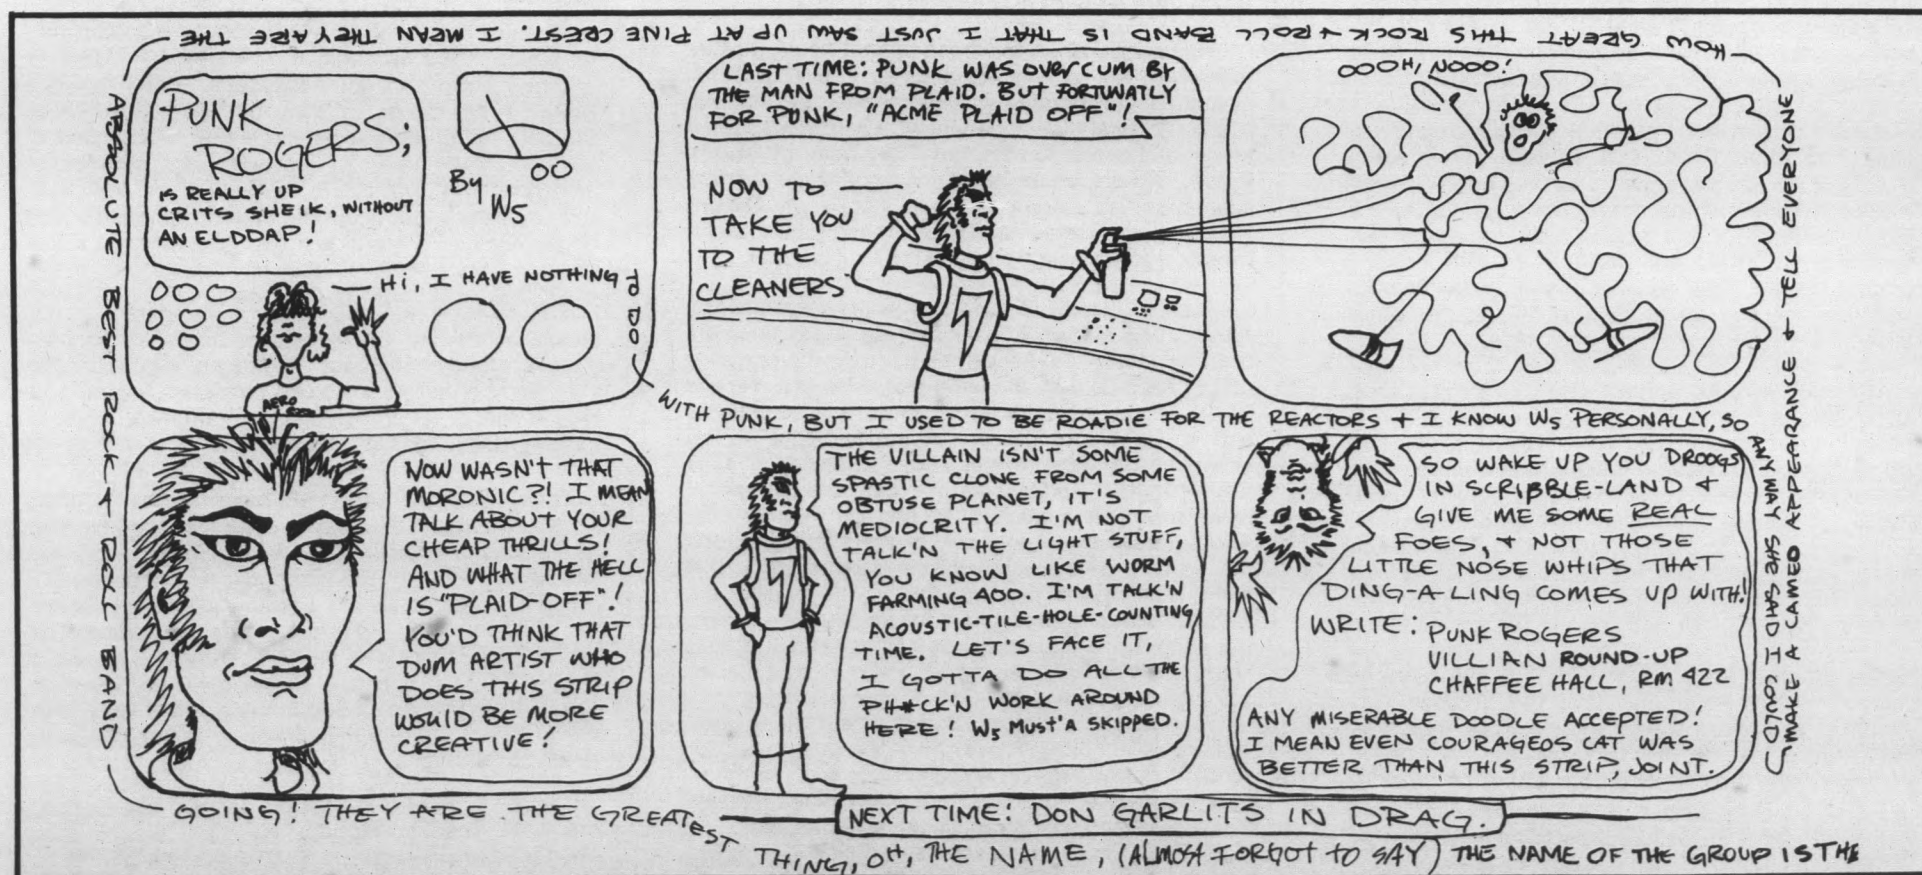 PUNK
ROGERS;
IS REALLY UP
CRITS SHEIK, WITHOUT
AN ELDDAP!
By
W5
Hi, I HAVE NOTHING TO DO
WITH PUNK, BUT I USED TO BE ROADIE FOR THE REACTORS + I KNOW W5 PERSONALLY, SO
ANY WAY SHE SAID I COULD
MAKE A CAMEO APPEARANCE + TELL EVERYONE
HOW GREAT THIS ROCK + ROLL BAND IS THAT I JUST SAW UP AT PINE CREST. I MEAN THEY ARE THE
ABSOLUTE BEST ROCK + ROLL BAND
GOING! THEY ARE THE GREATEST
THING, OH, THE NAME, (ALMOST FORGOT TO SAY) THE NAME OF THE GROUP IS THE
AERO
LAST TIME: PUNK WAS OVERCUM BY
THE MAN FROM PLAID. BUT FORTUNATLY
FOR PUNK, "ACME PLAID OFF"!
NOW TO
TAKE YOU
TO THE
CLEANERS
OOOH, NOOO!
NOW WASN'T THAT
MORONIC?! I MEAN
TALK ABOUT YOUR
CHEAP THRILLS!
AND WHAT THE HELL
IS "PLAID-OFF"!
YOU'D THINK THAT
DUM ARTIST WHO
DOES THIS STRIP
WOULD BE MORE
CREATIVE!
THE VILLAIN ISN'T SOME
SPASTIC CLONE FROM SOME
OBTUSE PLANET, IT'S
MEDIOCRITY. I'M NOT
TALK'N THE LIGHT STUFF,
YOU KNOW LIKE WORM
FARMING 400. I'M TALK'N
ACOUSTIC-TILE-HOLE-COUNTING
TIME. LET'S FACE IT,
I GOTTA DO ALL THE
PH#CK'N WORK AROUND
HERE! W5 MUST'A SKIPPED.
SO WAKE UP YOU DROOGS
IN SCRIBBLE-LAND +
GIVE ME SOME REAL
FOES, + NOT THOSE
LITTLE NOSE WHIPS THAT
DING-A-LING COMES UP WITH!
WRITE: PUNK ROGERS
VILLIAN ROUND-UP
CHAFFEE HALL, RM 422
ANY MISERABLE DOODLE ACCEPTED!
I MEAN EVEN COURAGEOS CAT WAS
BETTER THAN THIS STRIP, JOINT.
NEXT TIME: DON GARLITS IN DRAG.